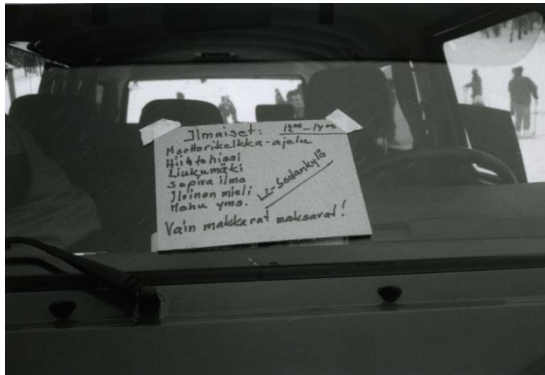 Ilmaiset: 12⁰⁰-14⁰⁰
Moottorikelkka-ajelu
Hiihtohissi
Liukumäki
Sopiva ilma
Iloinen mieli
Mehu yms.
-Sodankylä
Vain makkarat maksavat!